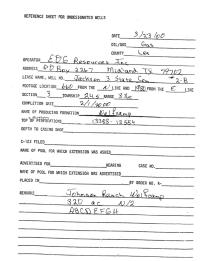 REFERENCE SHEET FOR UNDESIGNATED WELLS
DATE 3/23/00
OIL/GAS Gas
COUNTY Lea
OPERATOR EOG Resources Inc
ADDRESS PO Box 2267 Midland TX 79702
LEASE NAME, WELL NO. Jackson 3 State Com #2-B
FOOTAGE LOCATION: 660 FROM THE N LINE AND 1980 FROM THE E LINE
SECTION 3 TOWNSHIP 24s RANGE 33e
COMPLETION DATE 2/1/2000
NAME OF PRODUCING FORMATION Wolfcamp
TOP OF PERFORATIONS 13398-13554
DEPTH TO CASING SHOE
C-123 FILED
NAME OF POOL FOR WHICH EXTENSION WAS ASKED
ADVERTISED FOR HEARING CASE NO.
NAME OF POOL FOR WHICH EXTENSION WAS ADVERTISED
PLACED IN BY ORDER NO. R-
REMARKS Johnson Ranch Wolfcamp
320 ac N/2
ABCDEFGH